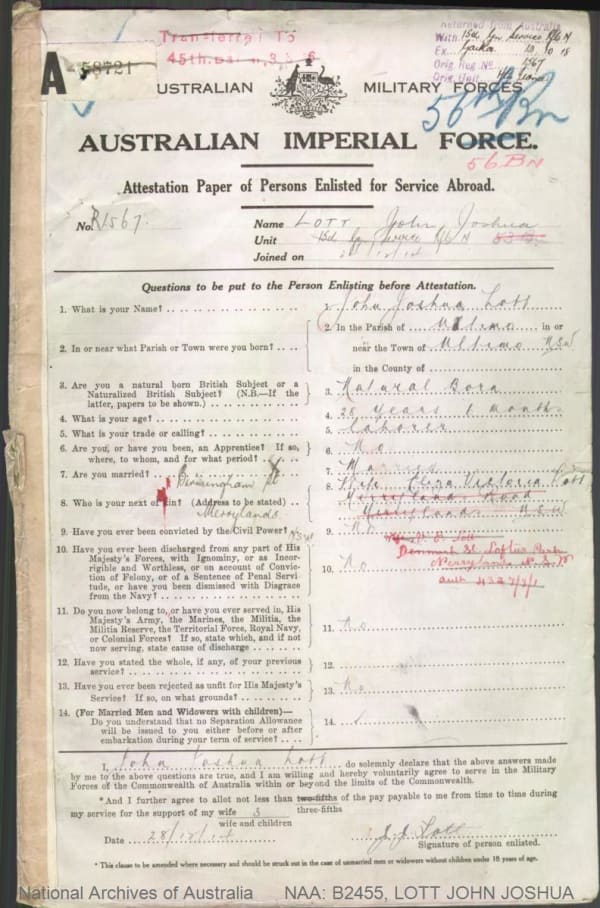 Transferred To
45th. Batn. 3.3.6
Returned from Australia
With 15th Gn. Service Rfts N
Ex. 10 18
Orig. Reg. No. 1567
Orig. Unit
A 58721
AUSTRALIAN MILITARY FORCES.
56th Bn
AUSTRALIAN IMPERIAL FORCE.
56 BN
Attestation Paper of Persons Enlisted for Service Abroad.
No. R1567. Name LOTT John Joshua
Unit 15th Gn Service Rfts N
Joined on
Questions to be put to the Person Enlisting before Attestation.
1. What is your Name? 1. John Joshua Lott
2. In or near what Parish or Town were you born? 2. In the Parish of Ultimo in or
near the Town of Ultimo NSW
in the County of
3. Are you a natural born British Subject or a
Naturalized British Subject? (N.B.—If the
latter, papers to be shown.) 3. Natural Born
4. What is your age? 4. 28 years 1 month
5. What is your trade or calling? 5. Laborer
6. Are you, or have you been, an Apprentice? If so,
where, to whom, and for what period? 6. No
7. Are you married? 7. Married
Birmingham St
8. Who is your next of kin? (Address to be stated) 8. Wife Eliza Victoria Lott
Merrylands Merryland Road
Merrylands N.S.W
9. Have you ever been convicted by the Civil Power? NSW 9. No
10. Have you ever been discharged from any part of His
Majesty's Forces, with Ignominy, or as Incor-
rigible and Worthless, or on account of Convic-
tion of Felony, or of a Sentence of Penal Servi-
tude, or have you been dismissed with Disgrace
from the Navy? 10. No
Denmark St. Loftus Park
Merrylands N.S.W
auth 4327/7/1
11. Do you now belong to, or have you ever served in, His
Majesty's Army, the Marines, the Militia, the
Militia Reserve, the Territorial Force, Royal Navy,
or Colonial Forces? If so, state which, and if not
now serving, state cause of discharge 11. No
12. Have you stated the whole, if any, of your previous
service? 12.
13. Have you ever been rejected as unfit for His Majesty's
Service? If so, on what grounds? 13. No
14. (For Married Men and Widowers with children)—
Do you understand that no Separation Allowance
will be issued to you either before or after
embarkation during your term of service? 14.
I, John Joshua Lott do solemnly declare that the above answers made
by me to the above questions are true, and I am willing and hereby voluntarily agree to serve in the Military
Forces of the Commonwealth of Australia within or beyond the limits of the Commonwealth.
* And I further agree to allot not less than two-fifths of the pay payable to me from time to time
three-fifths
my service for the support of my wife 3
wife and children
Date 28/12/14 J. J. Lott
Signature of person enlisted.
* This clause to be amended where necessary and should be struck out in the case of unmarried men or widowers without children under 18 years of age.
National Archives of Australia NAA: B2455, LOTT JOHN JOSHUA